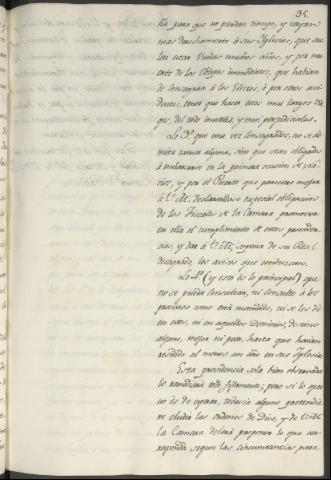 35
ña para que no pierdan tiempo, y vayan
mas derechamente á sus Iglesias, que sue
len estar Viudas muchos años, y por mu
erte de los Obispos inmediatos, que habian
de consagrar á los Electos, ó por otros acci
dentes, tienen que hacer estos muy largos Via
ges, del todo inutiles, y muy perjudiciales.
Lo 3º que una vez Consagrados, no se ad
mita causa alguna, sino que sean obligados
á embarcarse en la primera ocasion de Na
vios, y por el Decreto que pareciere mejor
á V. M. declarandose especial obligacion
de los Fiscales de la Camara promover
en ella el cumplimiento de estas providen
cias, y dar á V. M. siempre de su Real
desagrado, los avisos que conduzcan.
Lo 4º (y esto es lo principal) que
no se pueda Consultar, ni Consulte á los
proximos como está mandado, ni se les dé
en estos, ni en aquellos Dominios, destino
alguno, mejor ni peor, hasta que hayan
residido al menos un año en sus Iglesias.
Esta providencia sola bien observada
lo remediará todo ; pero si lo que
no es de esperar, todavia alguno pretendie
re eludir las ordenes de Dios, y de V. M.
la Camara deberá proponer lo que co
rresponda segun las circunstancias para